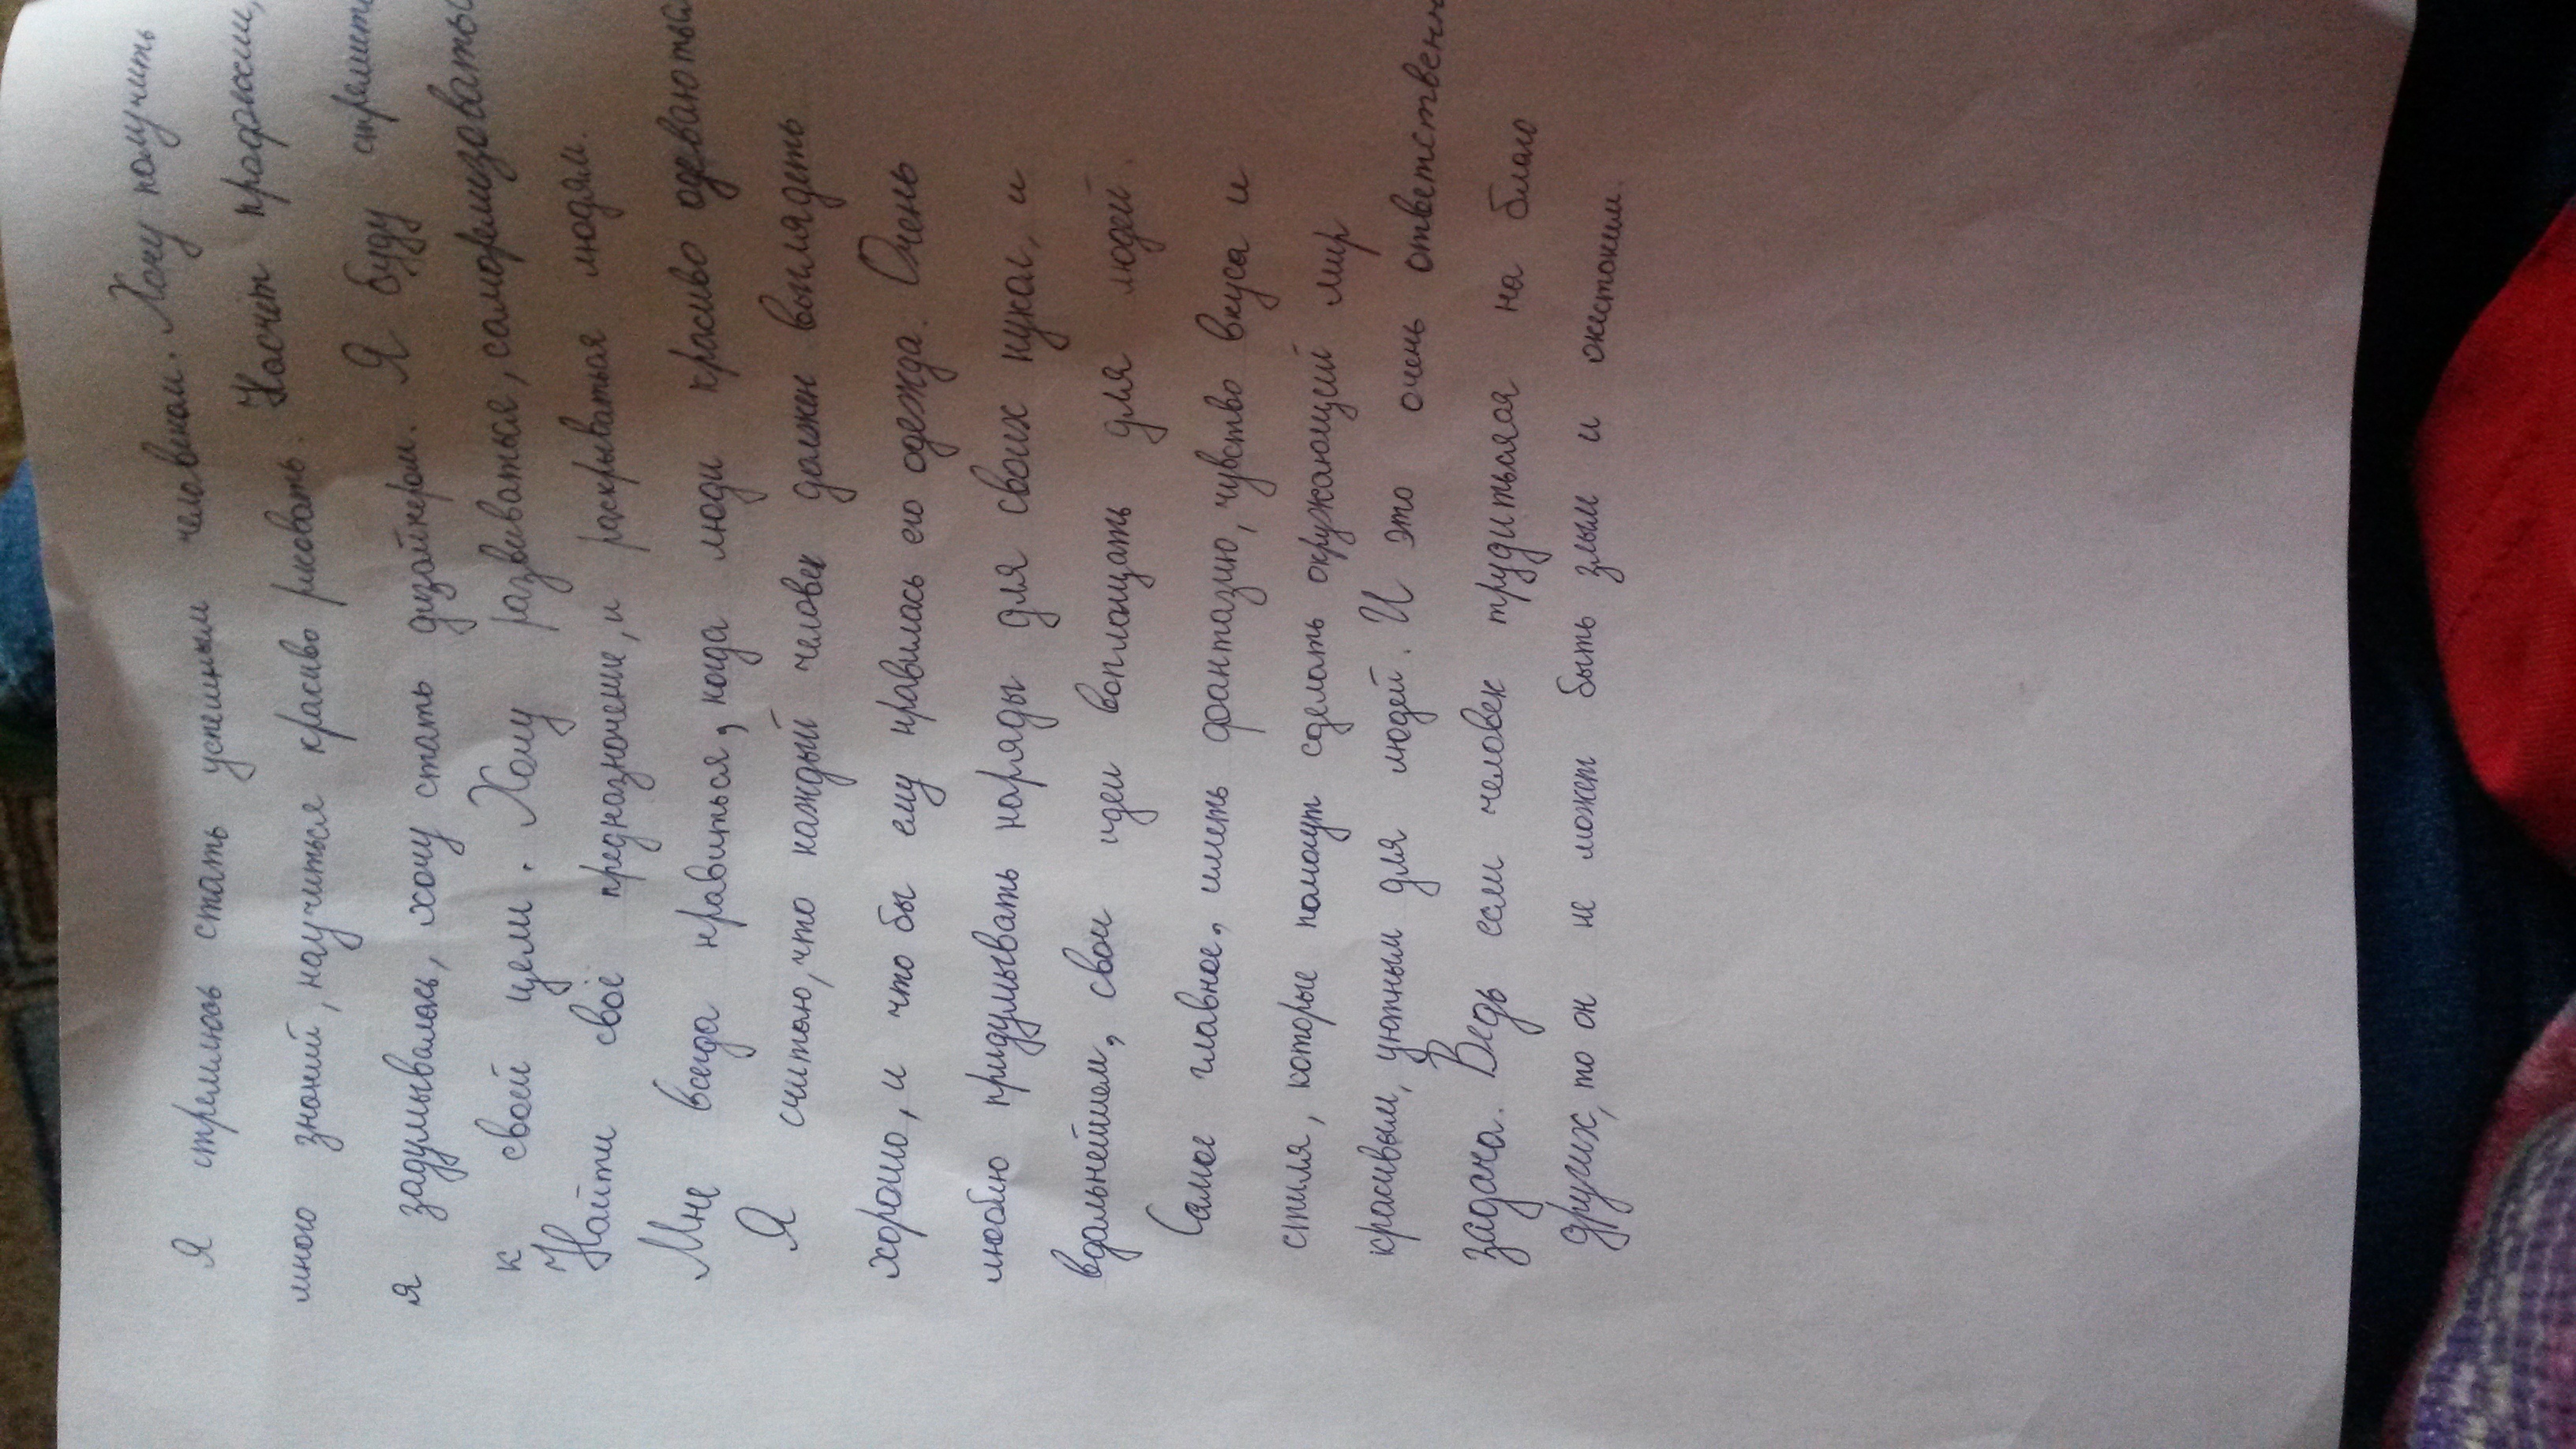 Я стремлюсь стать успешным человеком. Хочу получить
много знаний, научиться красиво рисовать. Насчёт профессии,
я задумывалась, хочу стать дизайнером. Я буду стремить
к своей цели. Хочу развиваться, самореализоваться
Найти своё предназначение, и раскрываться людям.
Мне всегда нравиться, когда люди красиво одеваються
Я считаю, что каждый человек должен выглядеть
хорошо, и что бы ему нравилась его одежда. Очень
люблю придумывать наряды для своих кукол, и
вдальнейшем, свои идеи воплощать для людей.
Самое главное, иметь фантазию, чувство вкуса и
стиля, которые помогут сделать окружающий мир
красивым, уютным для людей. И это очень ответственн
задача. Ведь если человек трудитьсяся на благо
других, то он не может быть злым и жестоким.